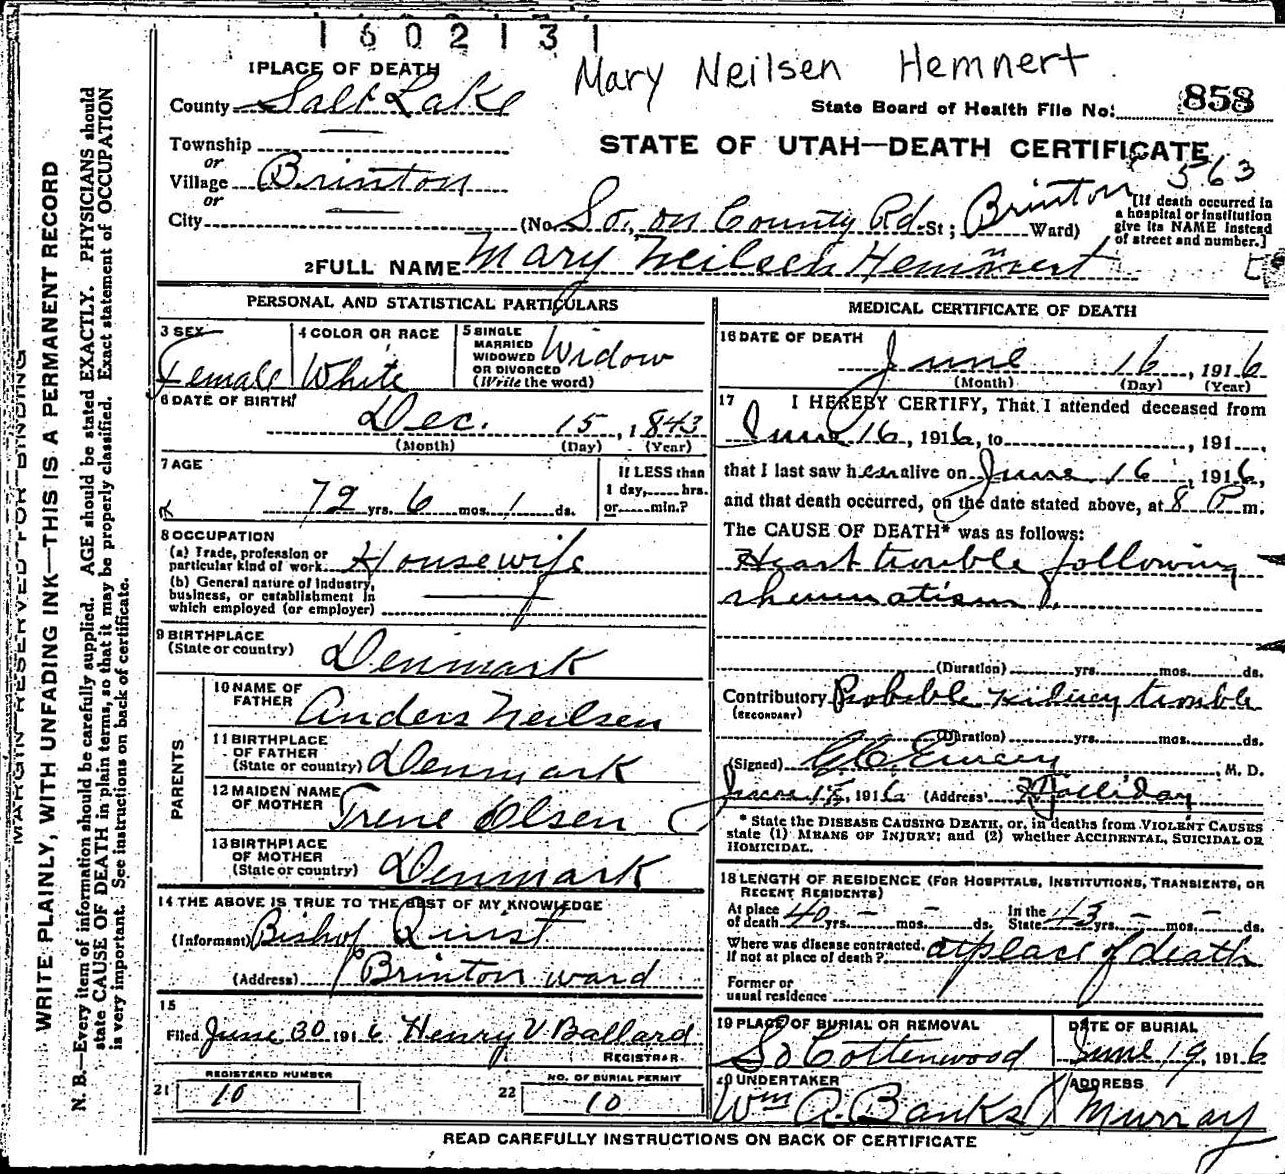 1602131
Mary Neilsen Hemnert
1 PLACE OF DEATH
County Salt Lake
State Board of Health File No. 858
Township
STATE OF UTAH—DEATH CERTIFICATE
or
563
Village Brinton
or
City
(No. So. on County Rd. St; Brinton Ward)
[If death occurred in
a hospital or institution
give its NAME instead
of street and number.]
2 FULL NAME Mary Neilsen Hemmert
PERSONAL AND STATISTICAL PARTICULARS
3 SEX
Female
4 COLOR OR RACE
White
5 SINGLE
MARRIED
WIDOWED
OR DIVORCED
(Write the word)
Widow
6 DATE OF BIRTH
Dec. 15, 1843
(Month) (Day) (Year)
7 AGE
72 yrs. 6 mos. 1 ds.
If LESS than
1 day, hrs.
or min.?
8 OCCUPATION
(a) Trade, profession or
particular kind of work Housewife
(b) General nature of industry,
business, or establishment in
which employed (or employer)
9 BIRTHPLACE
(State or country) Denmark
PARENTS
10 NAME OF
FATHER Anders Neilsen
11 BIRTHPLACE
OF FATHER
(State or country) Denmark
12 MAIDEN NAME
OF MOTHER Trene Olsen
13 BIRTHPLACE
OF MOTHER
(State or country) Denmark
14 THE ABOVE IS TRUE TO THE BEST OF MY KNOWLEDGE
(Informant) Bishop Quist
(Address) Brinton ward
15
Filed June 30 1916 Henry V. Ballard
REGISTRAR
21 REGISTERED NUMBER
10
22 NO. OF BURIAL PERMIT
10
MEDICAL CERTIFICATE OF DEATH
16 DATE OF DEATH
June 16, 1916
(Month) (Day) (Year)
17 I HEREBY CERTIFY, That I attended deceased from
June 16, 1916, to , 191 ,
that I last saw her alive on June 16, 1916,
and that death occurred, on the date stated above, at 8 P m.
The CAUSE OF DEATH* was as follows:
Heart trouble following
rheumatism.
(Duration) yrs. mos. ds.
Contributory Probable kidney trouble
(SECONDARY)
(Duration) yrs. mos. ds.
(Signed) , M. D.
June , 1916 (Address) Holliday
* State the DISEASE CAUSING DEATH, or, in deaths from VIOLENT CAUSES
state (1) MEANS OF INJURY; and (2) whether ACCIDENTAL, SUICIDAL OR
HOMICIDAL.
18 LENGTH OF RESIDENCE (FOR HOSPITALS, INSTITUTIONS, TRANSIENTS, OR
RECENT RESIDENTS)
At place
of death 40 yrs. - mos. - ds.
In the
State 43 yrs. - mos. - ds.
Where was disease contracted,
If not at place of death? at place of death
Former or
usual residence
19 PLACE OF BURIAL OR REMOVAL
So Cottenwood
DATE OF BURIAL
June 19, 1916
20 UNDERTAKER
Wm A. Banks
ADDRESS
Murray
READ CAREFULLY INSTRUCTIONS ON BACK OF CERTIFICATE
MARGIN RESERVED FOR BINDING
WRITE PLAINLY, WITH UNFADING INK—THIS IS A PERMANENT RECORD
N. B.—Every item of information should be carefully supplied. AGE should be stated EXACTLY. PHYSICIANS should
state CAUSE OF DEATH in plain terms, so that it may be properly classified. Exact statement of OCCUPATION
is very important. See instructions on back of certificate.